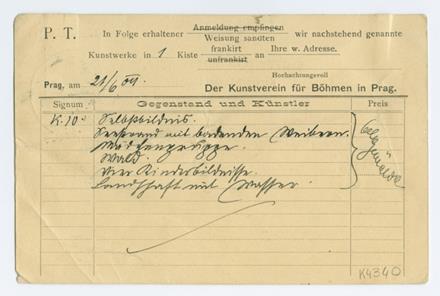 P. T. In Folge erhaltener Anmeldung empfingen wir nachstehend genannte
Weisung sandten
Kunstwerke in 1 Kiste frankirt an Ihre w. Adresse.
unfrankist
Hochachtungsvoll
Prag, am 21/6 09. Der Kunstverein für Böhmen in Prag.
Signum Gegenstand und Künstler Preis
K. 10. Selbstbildnis.
Seestrand mit badenden Weibern.
Mädchengruppe.
Wald.
Vier Kinderbildnisse.
Landschaft mit Wasser.
Oelgemälde
K4340